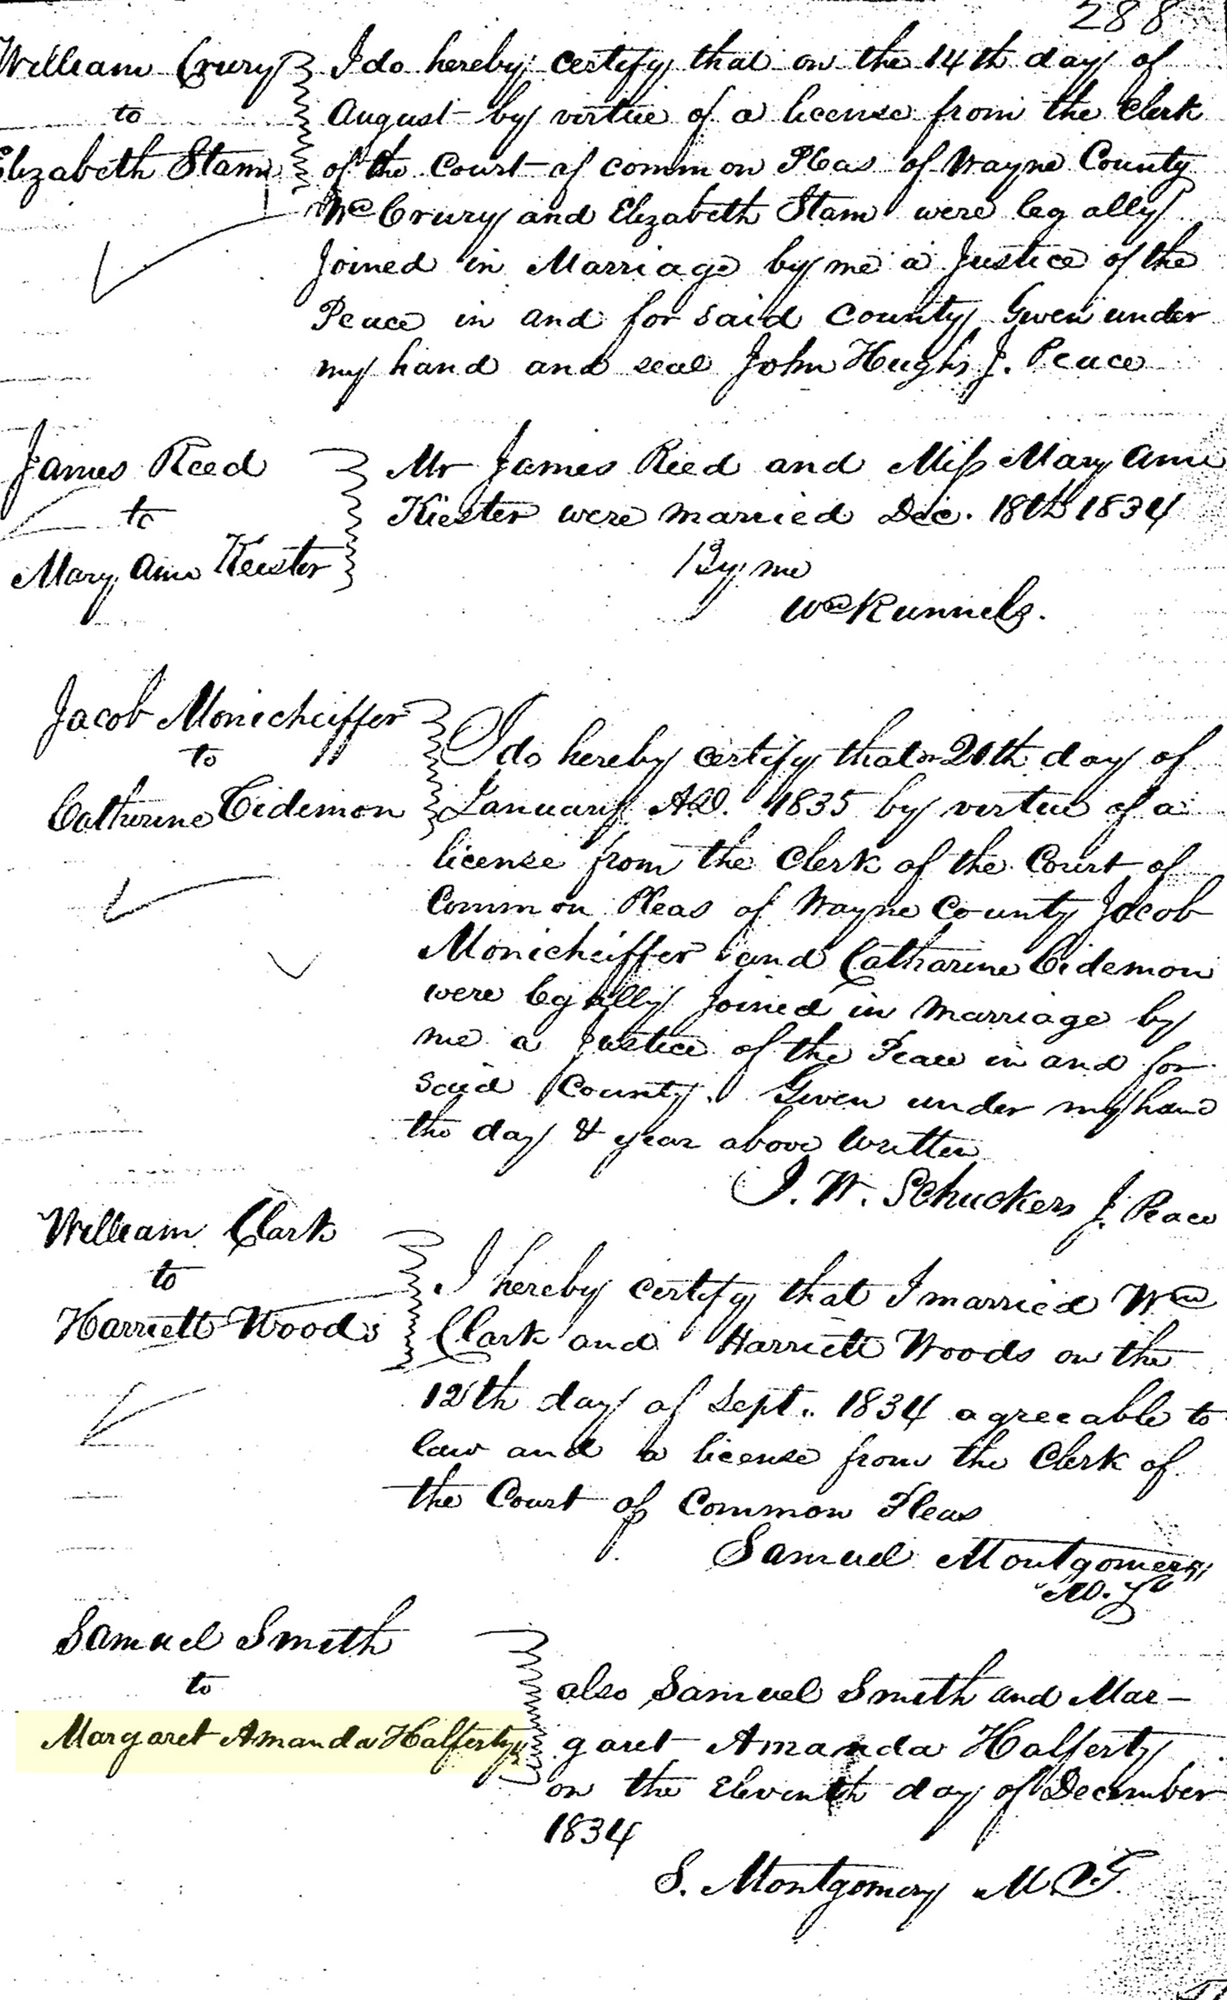 288
William Crury
to
Elizabeth Stam
I do hereby certify that on the 14th day of
August by virtue of a license from the Clerk
of the Court of common Pleas of Wayne County
Wm Crury and Elizabeth Stam were legally
Joined in Marriage by me a Justice of the
Peace in and for said County Given under
my hand and seal John Hughs J. Peace
James Reed
to
Mary Ann Keister
Mr James Reed and Miss Mary Ann
Kiester were married Dec. 18th 1834
By me
Wm Runnels.
Jacob Monicheiffer
to
Catharine Eidemon
I do hereby certify that on 20th day of
January A.D. 1835 by virtue of a
license from the Clerk of the Court of
Common Pleas of Wayne County Jacob
Monicheiffer and Catharine Eidemon
were legally joined in marriage by
me a Justice of the Peace in and for
said County. Given under my hand
the day & year above written
J. W. Schuckers J. Peace
William Clark
to
Harriett Woods
I hereby certify that I married Wm
Clark and Harriett Woods on the
12th day of Sept. 1834 agreeable to
law and a license from the Clerk of
the Court of Common Pleas
Samuel Montgomery
Samuel Smith
to
Margaret Amanda Halferty
also Samuel Smith and Mar-
garet Amanda Halferty
on the Eleventh day of December
1834
S. Montgomery